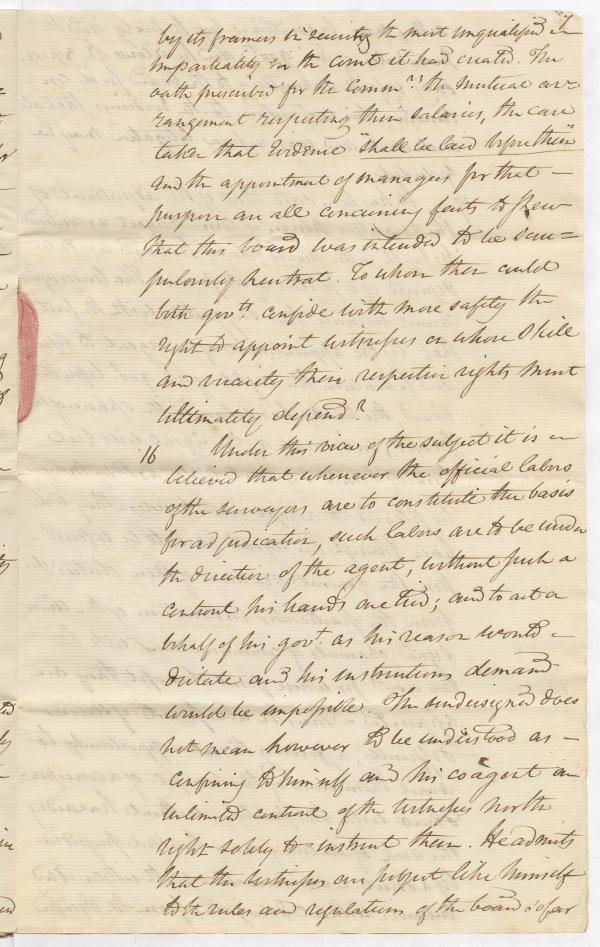 by its framers in securing the most unqualified
impartiality in the court it had created. The
oath prescribed for the Comm.rs the mutual ar=
rangement respecting their salaries, the care
taken that Evidence "shall be laid before them"
and the appointment of managers for that —
purpose are all concurring facts to shew
that this board was intended to be scru=
pulously neutral. To whom then could
both gov.ts confide with more safety the
right to appoint witnesses on whose Skill
and veracity their respective rights must
ultimately depend?
16 Under this view of the subject it is
believed that whenever the official labors
of the surveyors are to constitute the basis
for adjudication, such labors are to be under
the direction of the agent, without such a
controul his hands are tied; and to act on
behalf of his gov.t as his reason would —
dictate and his instructions demand
would be impossible. The undersigned does
not mean however to be understood as —
confining to himself and his coagent an
unlimited controul of the witnesses nor the
right solely to instruct them. He admits
that the witnesses are subject like himself
to the rules and regulations of the board so far